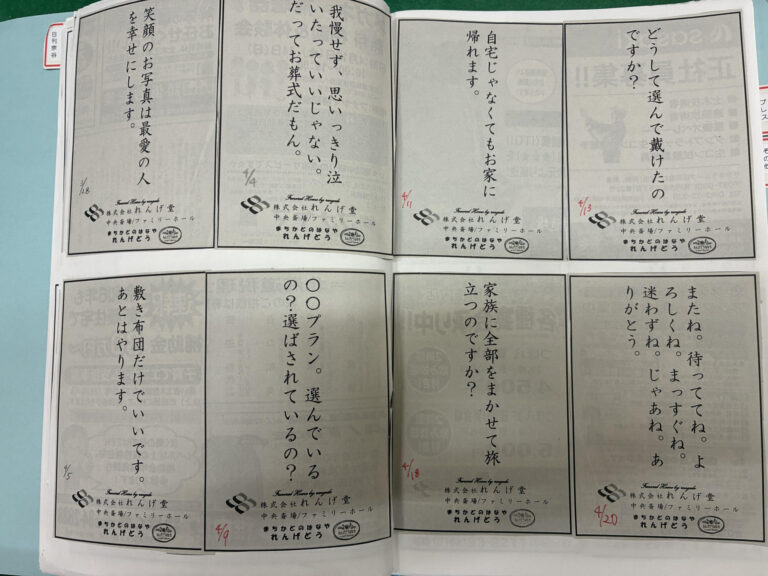 日刊宗谷
笑顔のお写真は最愛の人
を幸せにします。
3/28
株式会社れんげ堂
中央斎場/ファミリーホール
まちかどのはなや
れんげどう
我慢せず、思いっきり泣
いたっていいじゃない。
だってお葬式だもん。
4/4
株式会社れんげ堂
中央斎場/ファミリーホール
まちかどのはなや
れんげどう
敷き布団だけでいいです。
あとはやります。
4/5
株式会社れんげ堂
中央斎場/ファミリーホール
まちかどのはなや
れんげどう
〇〇プラン。選んでいる
の?選ばされているの?
4/9
株式会社れんげ堂
中央斎場/ファミリーホール
まちかどのはなや
れんげどう
自宅じゃなくてもお家に
帰れます。
4/11
株式会社れんげ堂
中央斎場/ファミリーホール
まちかどのはなや
れんげどう
どうして選んで戴けたの
ですか?
4/13
株式会社れんげ堂
中央斎場/ファミリーホール
まちかどのはなや
れんげどう
家族に全部をまかせて旅
立つのですか?
4/18
株式会社れんげ堂
中央斎場/ファミリーホール
まちかどのはなや
れんげどう
またね。待っててね。よ
ろしくね。まっすぐね。
迷わずね。じゃあね。あ
りがとう。
4/20
株式会社れんげ堂
中央斎場/ファミリーホール
まちかどのはなや
れんげどう
プレス
その他